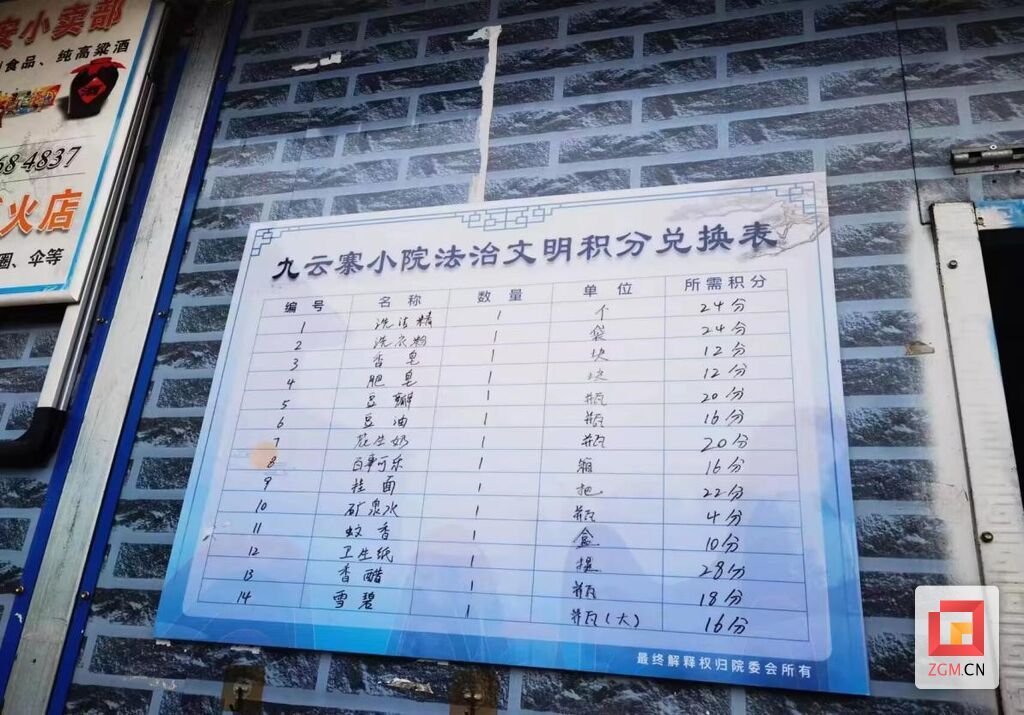 安小卖部
食品、纯高粱酒
68 4837
火店
圈、伞等
九云寨小院法治文明积分兑换表
编号 名称 数量 单位 所需积分
1 洗洁精 1 个 24分
2 洗衣粉 1 袋 24分
3 香皂 1 块 12分
4 肥皂 1 块 12分
5 豆瓣 1 瓶 20分
6 豆油 1 瓶 16分
7 花生奶 1 瓶 20分
8 百事可乐 1 箱 16分
9 挂面 1 把 22分
10 矿泉水 1 瓶 4分
11 蚊香 1 盒 10分
12 卫生纸 1 提 28分
13 香醋 1 瓶 18分
14 雪碧 1 瓶(大) 16分
最终解释权归院委会所有
ZGM.CN